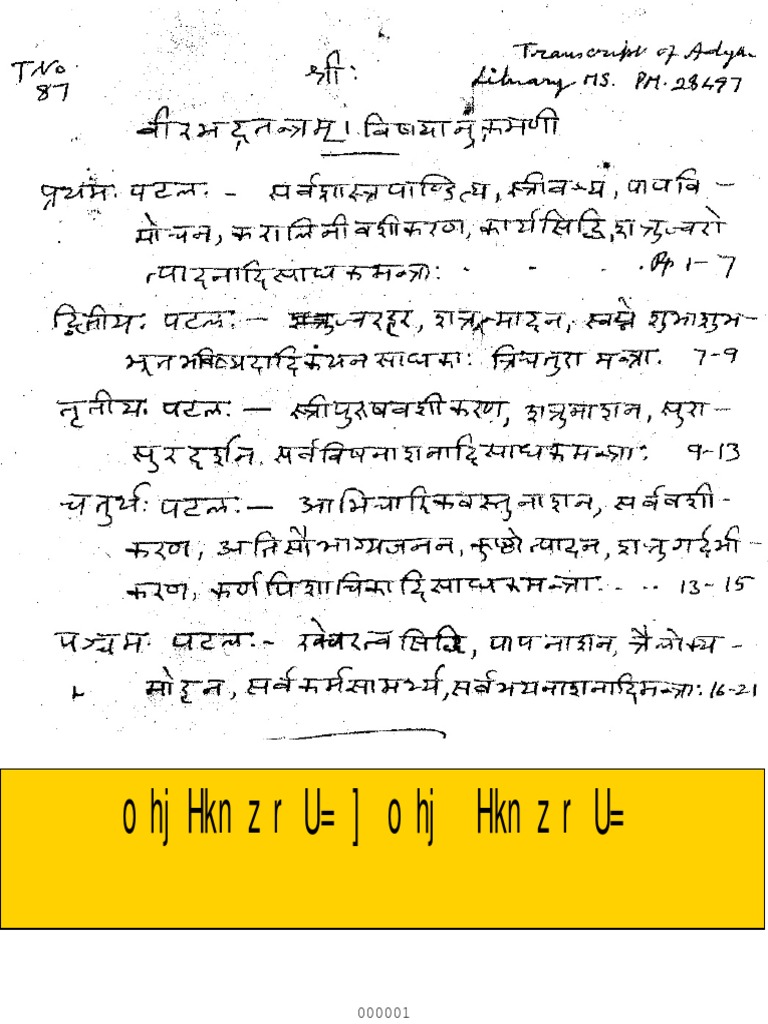 T No. 87
श्रीः
Transcript of Adyar
Library MS. PM. 28497
वीरभद्रतन्त्रम् । विषयानुक्रमणी
प्रथमः पटलः - सर्वशास्त्रपाण्डित्य, स्त्रीवश्यं, पापवि -
मोचन, करालिनीवशीकरण, कार्यसिद्धि, शत्रुज्वरो
त्पादनादिसाधकमन्त्राः - - - . Pp 1-7
द्वितीयः पटलः - शत्रुज्वरहर, शत्रून्मादन, स्वप्ने शुभाशुभ-
भूतभविष्यदादिकथन साधकाः त्रिचतुरा मन्त्राः 7-9
तृतीयः पटलः - स्त्रीपुरुषवशीकरण, शत्रुनाशन, सुरा -
सुरदर्शन, सर्वविषनाशनादिसाधकमन्त्राः 9-13
चतुर्थः पटलः - आभिचारिकवस्तुनाशन, सर्ववशी -
करण, अतिसौभाग्यजनन, कुष्ठोत्पादन, शत्रुगर्दभी
करण, कर्णपिशाचिकादिसाधकमन्त्राः - .. 13-15
पञ्चमः पटलः - खेचरत्वसिद्धि, पापनाशन, त्रैलोक्य -
मोहन, सर्वकर्मसामर्थ्य, सर्वभयनाशनादिमन्त्राः 16-21
o hj Hkn z r U= ] o hj Hkn z r U=
000001